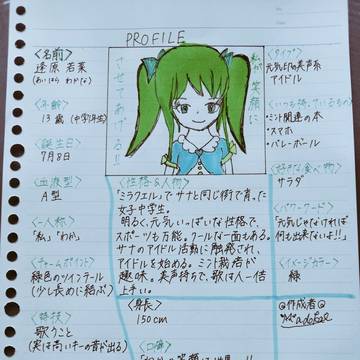 PROFILE
<名前>
逢原 若菜
(あいはら わかな)
<年齢>
13歳 (中学1年生)
<誕生日>
7月8日
<血液型>
A型
<一人称>
「私」「わか」
<チャームポイント>
緑色のツインテール
(少し長めに結ぶ)
<特技>
歌うこと
(実は高いキーの音が出る)
私が、笑顔に
させてあげる!!
<性格&人物>
「ミラクエル」でサナと同じ街で育った
女子中学生。
明るく、元気いっぱいな性格で、
スポーツも万能。クールな一面もある。
サナのアイドル活動に触発されて、
アイドルを始める。ミント栽培が
趣味。美声持ちで、歌は人一倍
上手い。
<身長>
150cm
<口癖>
<タイプ>
元気印の美声系
アイドル
<いつも持っているもの>
・ミント関連の本
・スマホ
・バレーボール
<好きな食べ物>
サラダ
<パワーワード>
「元気じゃなければ
何も出来ないよ!!」
<イメージカラー>
緑
◎作成者◎